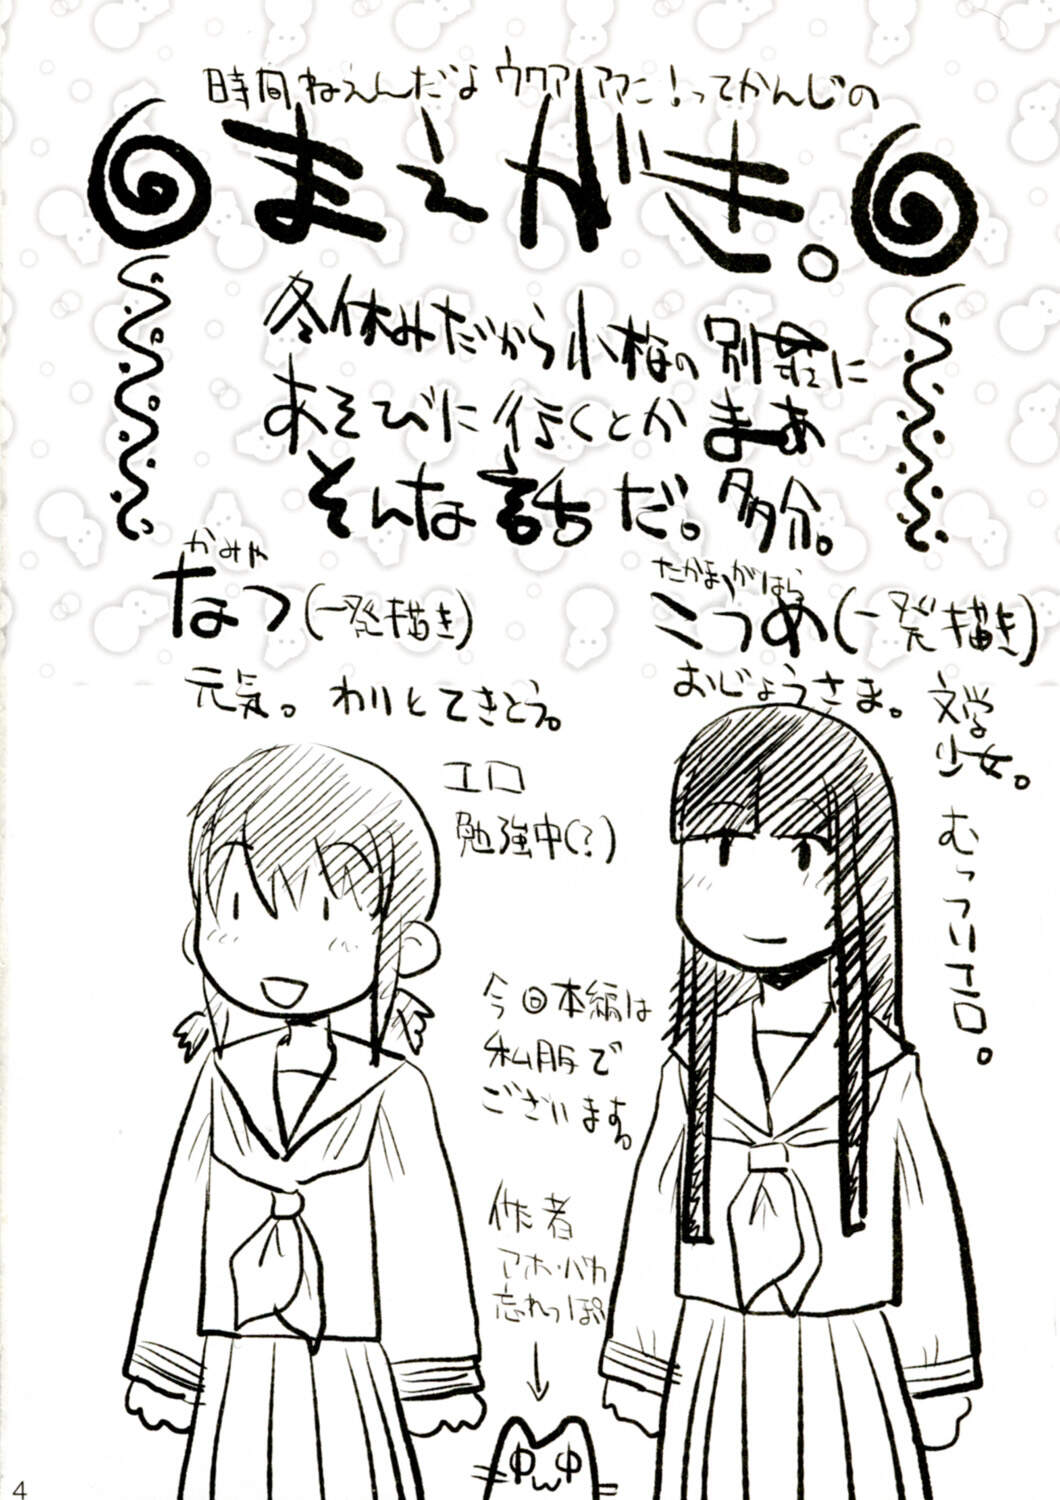 時間ねえんだよ ウワァァァン！ってかんじの
まえがき。
冬休みだから小梅の別荘に
あそびに行くとか まぁ
そんな話だ。多分。
かみや
なつ(一発描き)
元気。わりとてきとう。
エロ
勉強中(?)
たかまがはら
こうめ(一発描き)
おじょうさま。
文学
少女。
むっつりエロ。
今回本編は
私服で
ございます。
作者
アホ・バカ
忘れっぽい
↓
4